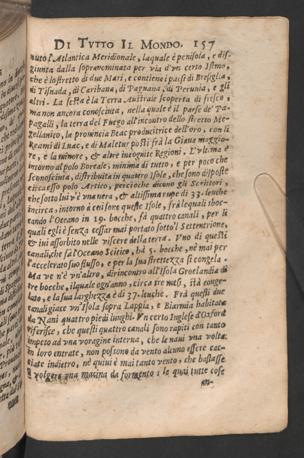 DI TVTTO IL MONDO. 157
nuto l'Atlantica Meridionale, laquale è penisola, e dis-
giunta dalla sopranominata per via d'vn certo Istmo,
che è lo stretto di due Mari, e contiene i paesi di Bresiglia,
di Tisnada, di Caribana, di Paguana, di Perunia, e gli
altri. La sesta è la Terra Australe scoperta di fresco,
ma non ancora conosciuta, nella quale è il paese de' Pa-
pagalli, la terra del Fuego all'incontro dello stretto Me-
gellanico, la prouincia Beac producitrice dell'oro, con li
Reami di Luac, e di Maletur posti frà la Giaua maggio-
re, e la minore, & altre incognite Regioni. L'vltima è
intorno al polo Boreale, minima di tutto, e per poco che
sconosciuta, distribuita in quatro Isole, che sono disposte
circa esso polo Artico, percioche alcuni gli Scrittori,
che sotto lui v'è vna nera, & altissima rupe di 33. leuche
incirca, intorno à cui sono queste Isole, frà le quali sboc-
cando l'Oceano in 19. bocche, fa quattro canali, per li
quali egli è senza cessar mai portato sotto'l Settentrione,
& iui assorbito nelle viscere della terra. Vno di questi
canali, che fà l'Oceano Scitico, hà 5. bocche, nè mai per
l'accelerato suo flusso, e per la sua strettezza si congela.
Ma ve n'è vn'altro, dirincontro all'Isola Groelandia di
tre bocche, il quale ogn'anno, circa tre mesi, stà conge-
lato, e la sua larghezza è di 37. leuche. Frà questi due
canali giace vn'Isola sopra Lappia, e Biarmia habitata
da Nani quattro piedi lunghi. Vn certo Inglese d'Oxford
riferisce, che questi quattro canali sono rapiti con tanto
impeto ad vna voragine interna, che le naui vna volta
in loro entrate, non possono da vento alcuno essere cac-
ciate indietro, nè quiui è mai tanto vento, che bastasse
à volgere vna macina da formento; le quai tutte cose